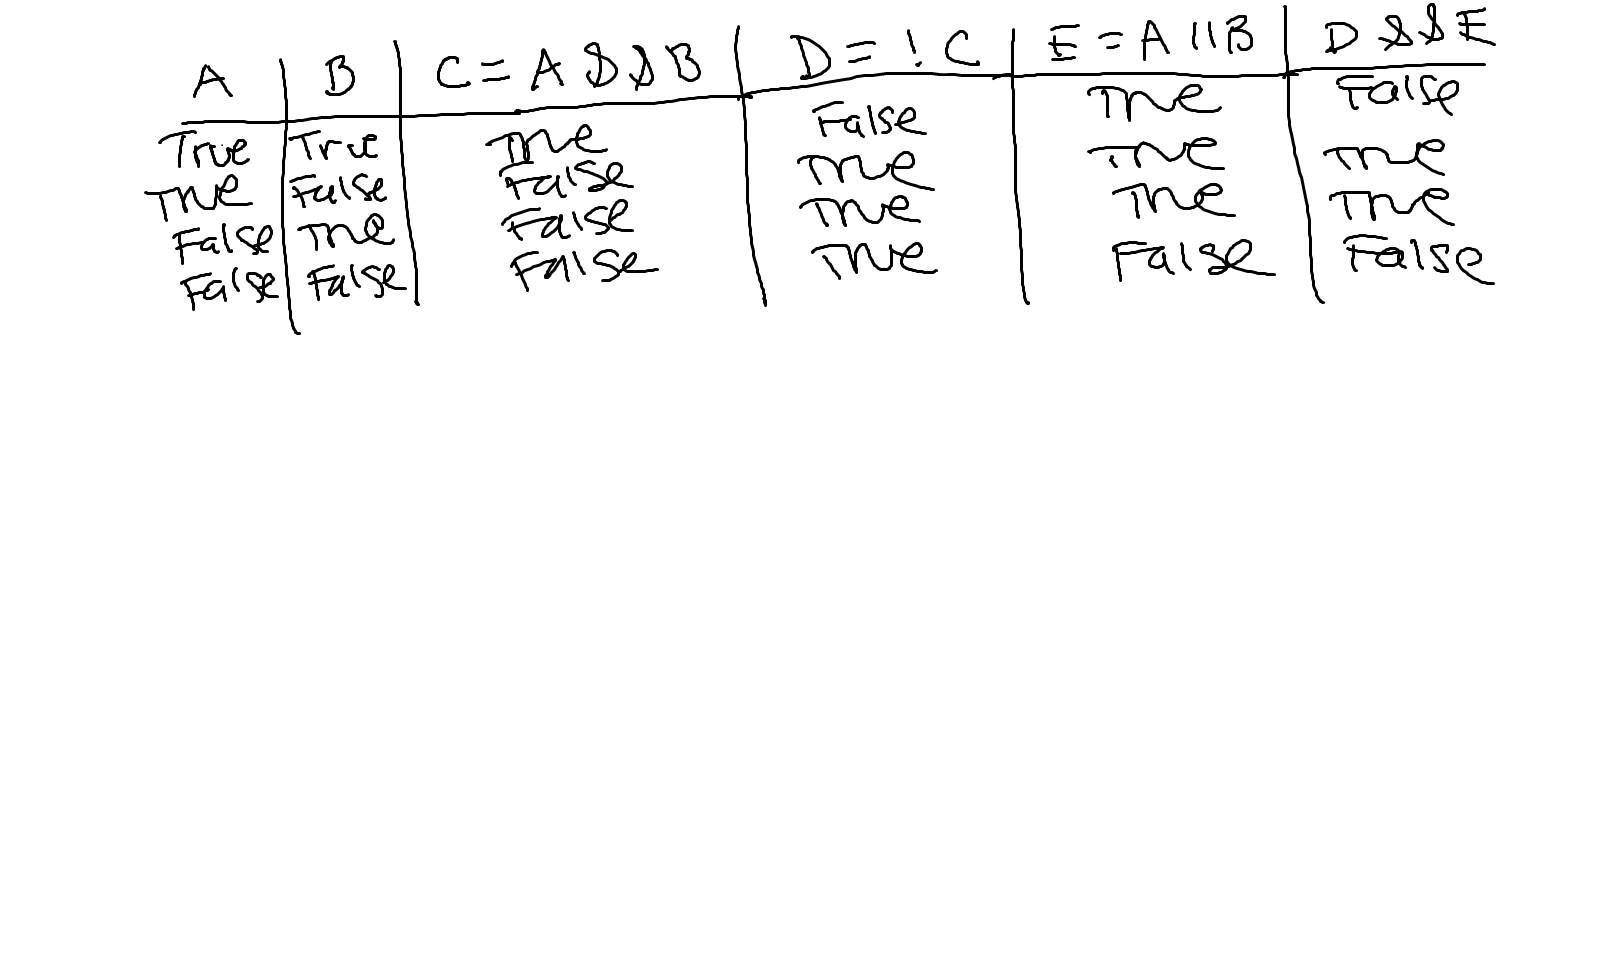 A B C = A && B D = ! C E = A || B D && E
True True True False True False
True False False True True True
False True False True True True
False False False True False False